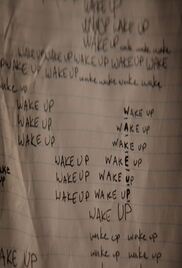 WAKE UP
WAKE UP WAKE UP
WAKE UP wake wake wake
WAKE UP WAKE UP WAKE UP WAKE UP WAKE
WAKE UP WAKE UP wake wake wake wake
wake up
WAKE UP WAKE UP
WAKE UP WAKE UP
WAKE UP WAKE UP
WAKE UP WAKE UP
WAKE UP WAKE UP
WAKE UP WAKE UP
WAKE UP
wake up wake up
WAKE UP wake up wake up